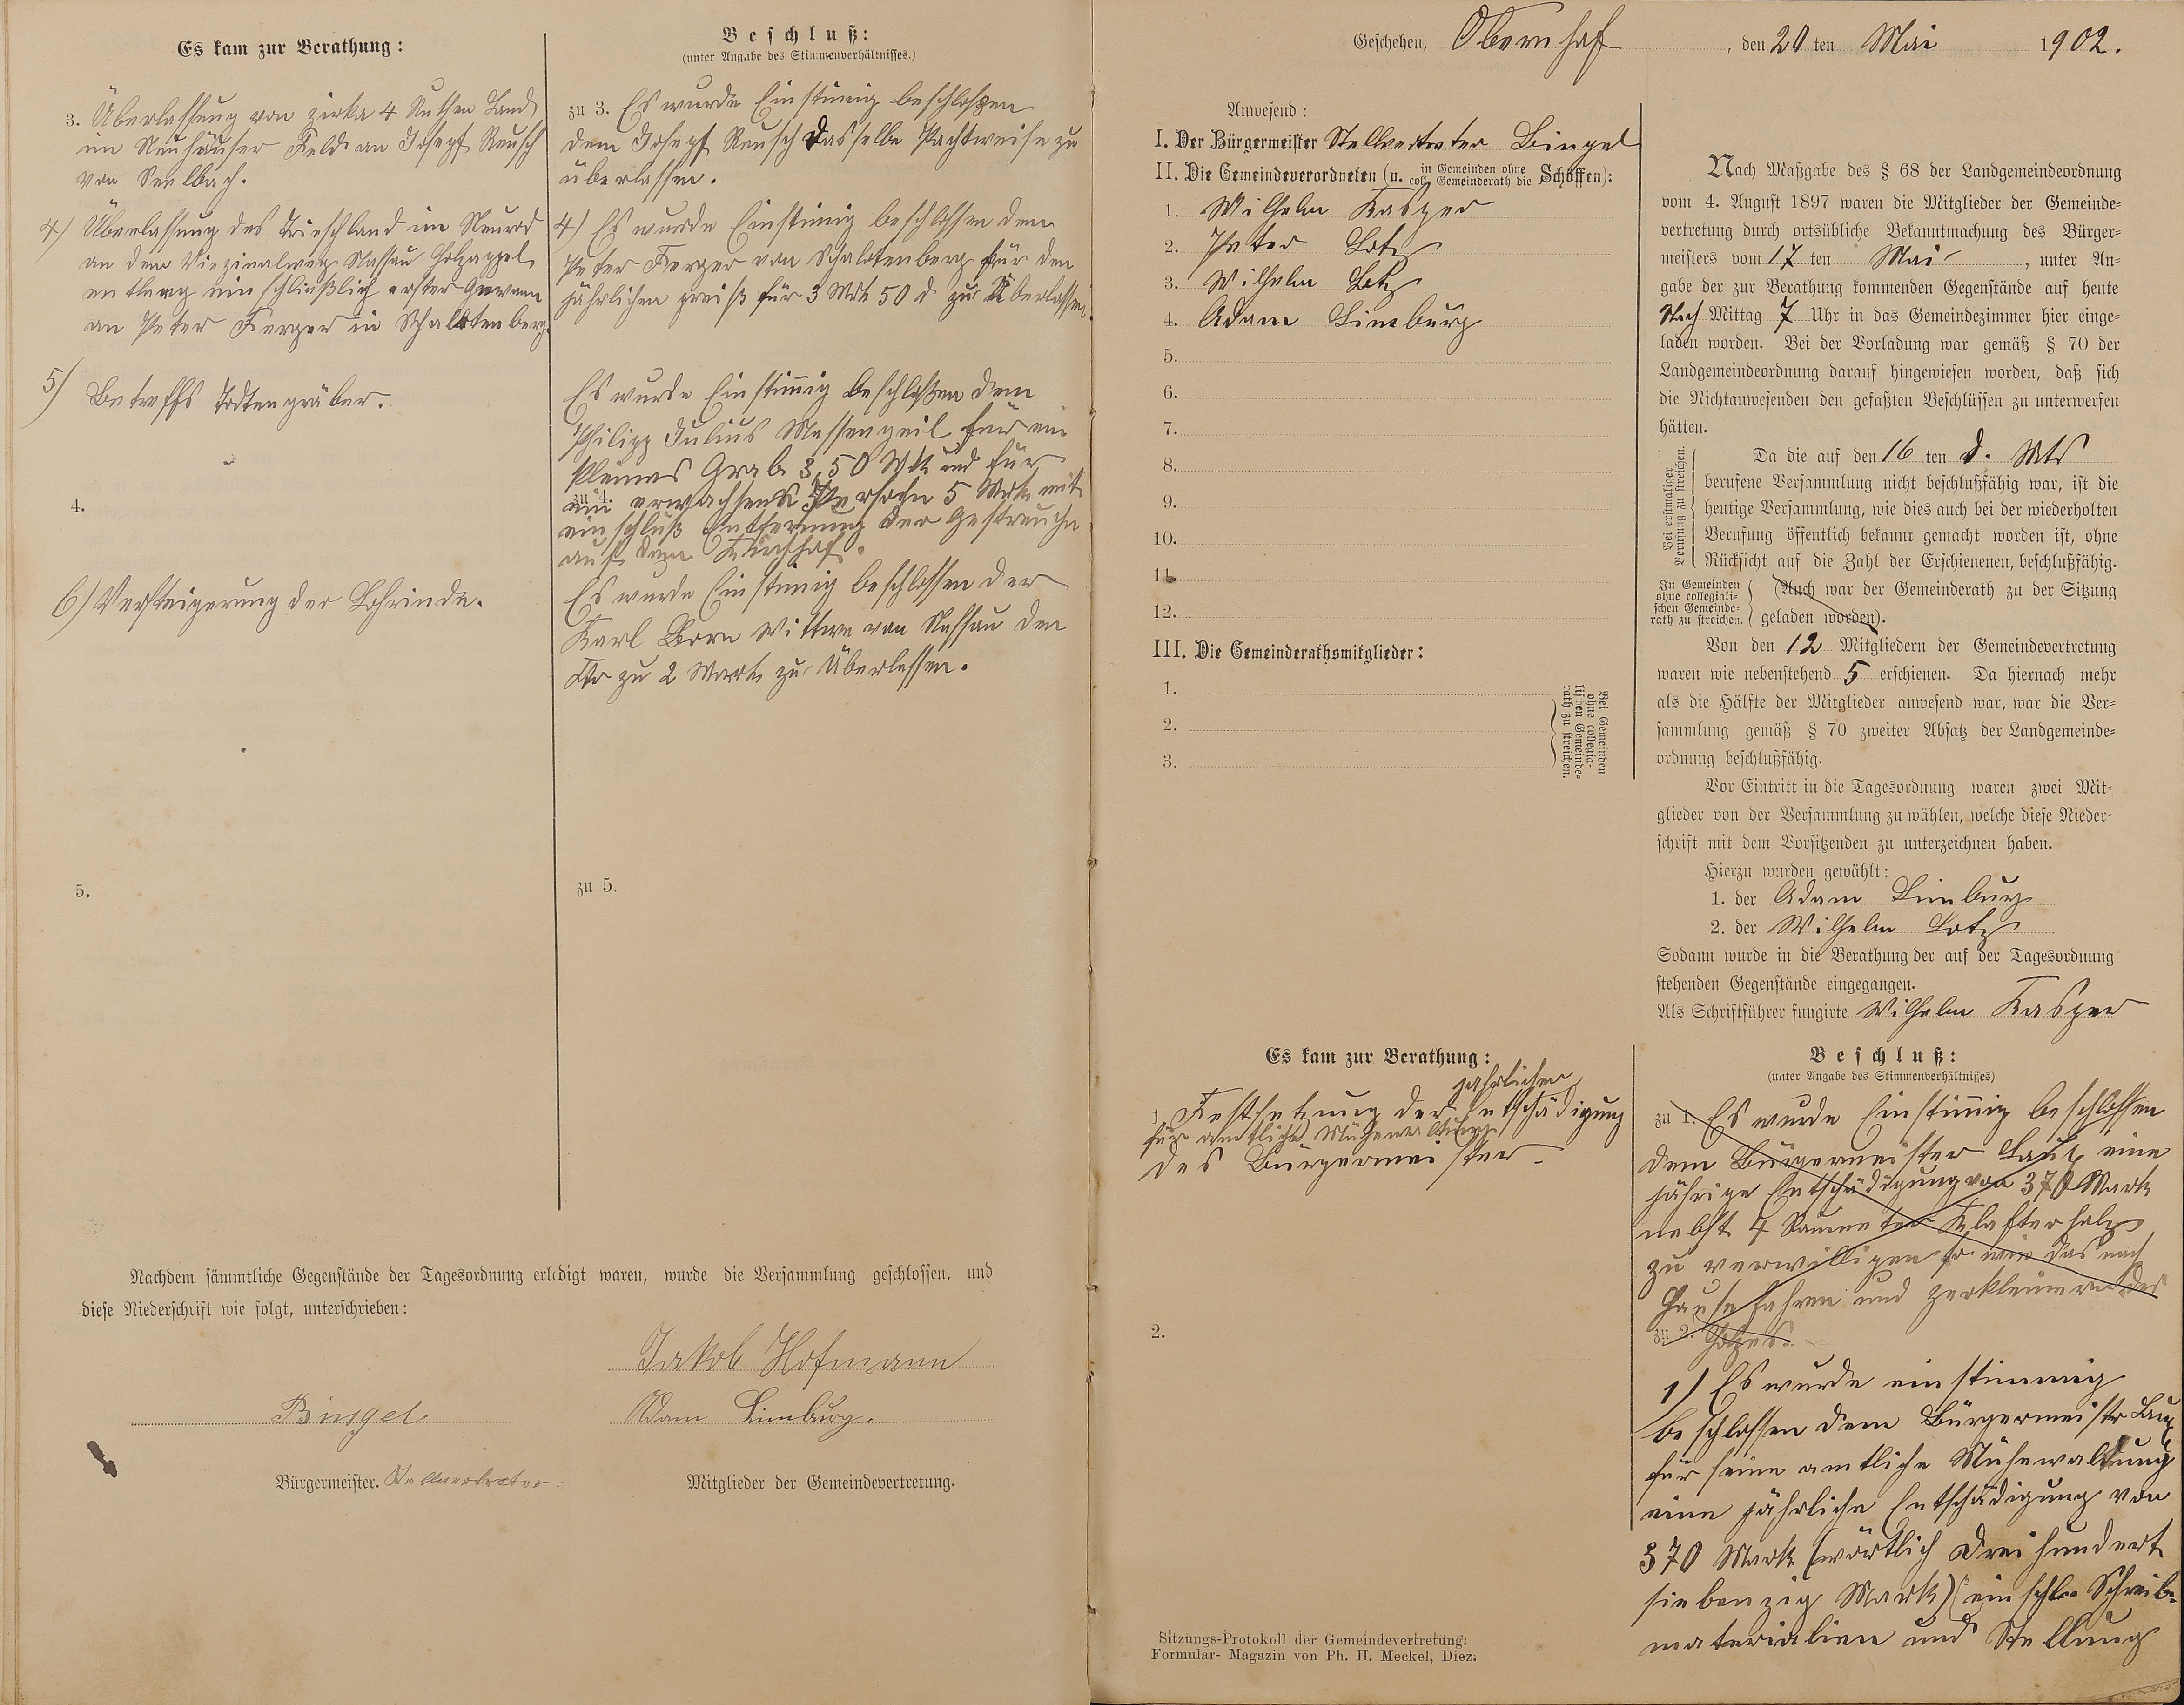 Es kam zur Berathung:
3. Überlassung von zirka 4 Ruthen Land
im Neuhäuser Feld an Joseph Reusch
von Seelbach.
4) Überlassung des Trieschland im Neurod
an dem Viezinalweg Nassau Holzappel
entlang einschließlich erster Gewann
an Peter Ferger in Schaltenberg
5) Betreffs Todtengräber.
4.
6) Versteigerung der Lohrinde.
5.
Beschluß:
(unter Angabe des Stimmenverhältnisses.)
zu 3. Es wurde Einstimig beschloßen
dem Joseph Reusch Dasselbe Pachtweise zu
überlassen.
4) Es wurde Einstimig beschlossen dem
Peter Ferger von Schaltenberg für den
jährlichen preiß für 3 Mrk 50 d zu Überlassen.
Es wurde Einstimmig beschloßen dem
Philipp Julius Massengeil für ein
kleines Grab 3,50 Mrk und für
zu 4.
ein erwachsene Persohn 5 Mrk mit
einschluß Entfernung der Gestreuche
auf dem Kirchhof.
Es wurde Einstimig beschlossen der
Karl Born Wittwe von Nassau den
Ctr zu 2 Mark zu Überlassen.
zu 5.
Nachdem sämmtliche Gegenstände der Tagesordnung erledigt waren, wurde die Versammlung geschlossen, und
diese Niederschrift wie folgt, unterschrieben:
Jakob Hofmann
Bingel
Adam Limburg.
Bürgermeister. Stellvertreter.
Mitglieder der Gemeindevertretung.
Geschehen, Obernhof, den 20 ten Mai 1902.
Anwesend:
I. Der Bürgermeister Stellvertreter Bingel
II. Die Gemeindeverordneten (u. in Gemeinden ohne coll. Gemeinderath die Schöffen):
1. Wilhelm Kasper
2. Peter Lotz
3. Wilhelm Lotz
4. Adam Limburg
5.
6.
7.
8.
9.
10.
11.
12.
III. Die Gemeinderathsmitglieder:
1.
2.
3.
Bei Gemeinden
ohne collegia-
lischen Gemeinde-
rath zu streichen.
Nach Maßgabe des § 68 der Landgemeindeordnung
vom 4. August 1897 waren die Mitglieder der Gemeinde-
vertretung durch ortsübliche Bekanntmachung des Bürger-
meisters vom 17 ten Mai, unter An-
gabe der zur Berathung kommenden Gegenstände auf heute
Nach Mittag 7 Uhr in das Gemeindezimmer hier einge-
laden worden. Bei der Vorladung war gemäß § 70 der
Landgemeindeordnung darauf hingewiesen worden, daß sich
die Nichtanwesenden den gefaßten Beschlüssen zu unterwerfen
hätten.
Bei erstmaliger
Berufung zu streichen.
Da die auf den 16 ten d. Mts
berufene Versammlung nicht beschlußfähig war, ist die
heutige Versammlung, wie dies auch bei der wiederholten
Berufung öffentlich bekannt gemacht worden ist, ohne
Rücksicht auf die Zahl der Erschienenen, beschlußfähig.
In Gemeinden
ohne collegiali-
schen Gemeinde-
rath zu streichen.
(Auch war der Gemeinderath zu der Sitzung
geladen worden).
Von den 12 Mitgliedern der Gemeindevertretung
waren wie nebenstehend 5 erschienen. Da hiernach mehr
als die Hälfte der Mitglieder anwesend war, war die Ver-
sammlung gemäß § 70 zweiter Absatz der Landgemeinde-
ordnung beschlußfähig.
Vor Eintritt in die Tagesordnung waren zwei Mit-
glieder von der Versammlung zu wählen, welche diese Nieder-
schrift mit dem Vorsitzenden zu unterzeichnen haben.
Hierzu wurden gewählt:
1. der Adam Limburg
2. der Wilhelm Lotz
Sodann wurde in die Berathung der auf der Tagesordnung
stehenden Gegenstände eingegangen.
Als Schriftführer fungirte Wilhelm Kasper
Es kam zur Berathung:
jährlichen
1. Festsetzung der Entschädigung
für amtliche Mühewaltung
des Bürgermeister.
2.
Beschluß:
(unter Angabe des Stimmenverhältnisses)
zu 1. Es wurde Einstimig beschlossen
dem Bürgermeister Laux eine
jährige Entschädigung von 370 Mark
nebst 4 Raumeter Klafterholz
zu verwilligen so wie das nach
Hause fahren und zerkleinern des
zu 2. Holzes.
1) Es wurde einstimmig
beschlossen dem Bürgermeistr Laux
für seine amtliche Mühewaltung
eine jährliche Entschädigung von
370 Mark (wörtlich Dreihundert
siebenzig Mark) (einschl. Schreib-
materialien und Stellung
Sitzungs-Protokoll der Gemeindevertretung.
Formular- Magazin von Ph. H. Meckel, Diez.